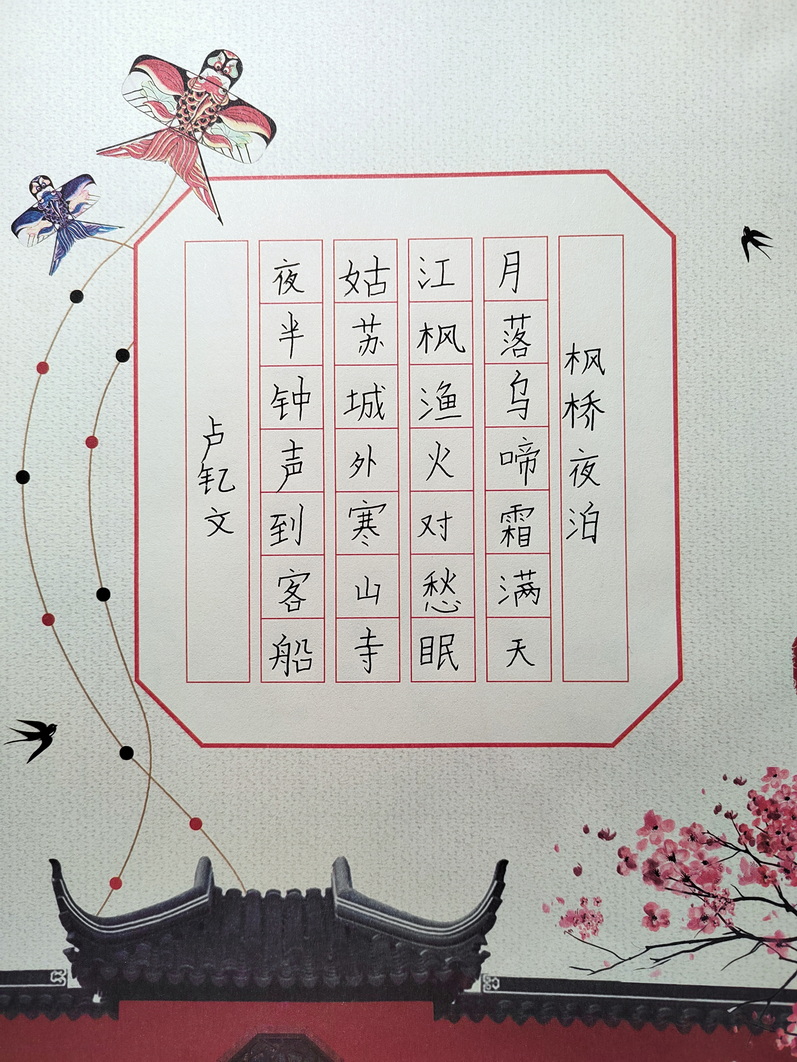 枫桥夜泊
月落乌啼霜满天
江枫渔火对愁眠
姑苏城外寒山寺
夜半钟声到客船
卢钇文